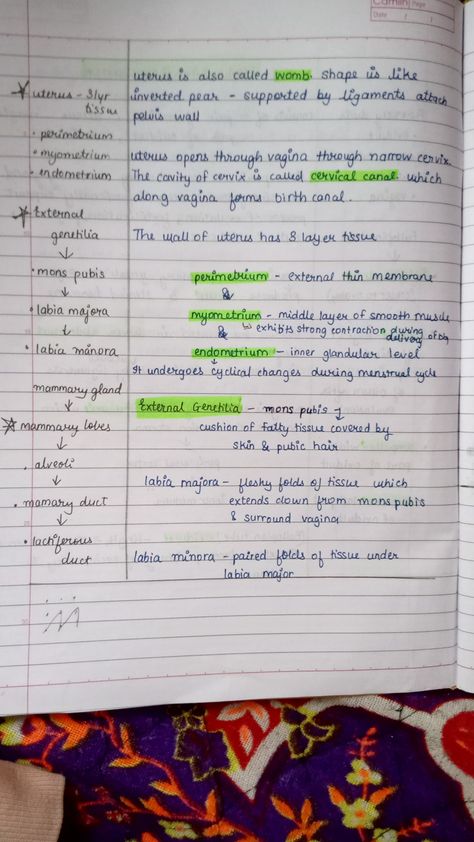 Camlin Page
Date / /
uterus is also called womb. shape is like
uterus - 3lyr inverted pear - supported by ligaments attach
tissus pelvis wall
• perimetrium
• myometrium uterus opens through vagina through narrow cervix.
• endometrium The cavity of cervix is called cervical canal. which
along vagina forms birth canal.
External
genetilia The wall of uterus has 3 layer tissue
↓
• mons pubis perimetrium - external thin membrane
↓ &
• labia majora myometrium - middle layer of smooth muscle
↓ & ↳ exhibits strong contraction during
delivery of
• labia minora endometrium - inner glandular level
It undergoes cyclical changes during menstrual cycle
mammary gland
↓ External Genetilia - mons pubis
mammary lobes cushion of fatty tissue covered by
↓ skin & pubic hair
• alveoli
↓ labia majora - fleshy folds of tissue which
• mamary duct extends down from mons pubis
↓ & surround vagina
• lactiferous
duct labia minora - paired folds of tissue under
labia major